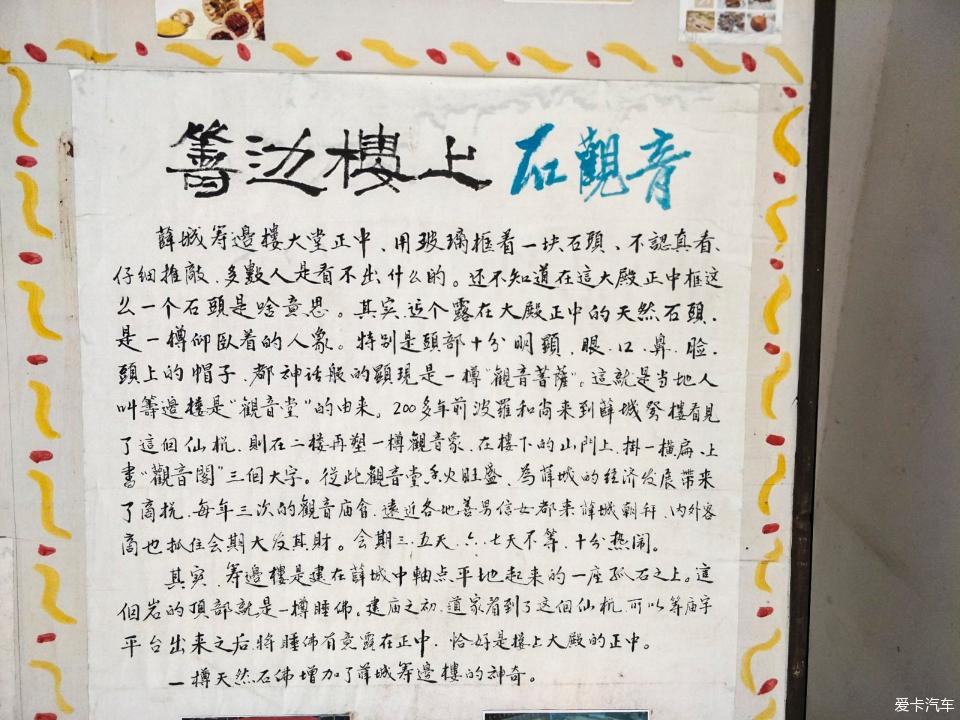 籌边樓上 石觀音
薛城筹邊樓大堂正中、用玻璃框着一块石頭、不認真看、
仔细推敲、多數人是看不出什么的。还不知道在這大殿正中框这
么一个石頭是啥意思。其实、这个露在大殿正中的天然石頭、
是一樽仰卧着的人象。特别是頭部十分明顕、眼、口、鼻、脸、
頭上的帽子、都神话般的顕現是一樽“觀音菩薩”。這就是当地人
叫筹邊楼是“觀音堂”的由来。200多年前波羅和尚来到薛城登樓看見
了這個仙机、則在二楼再塑一樽觀音象、在樓下的山門上、掛一横扁、上
書“觀音閣”三個大字。從此觀音堂香火旺盛、為薛城的经济发展带来
了商机、每年三次的觀音庙會、遠近各地善男信女都来薛城朝拜、内外客
商也抓住会期大发其財。会期三、五天、六、七天不等、十分热闹。
其実、筹邊樓是建在薛城中軸点平地起来的一座孤石之上。這
個岩的頂部就是一樽睡佛。建庙之初、道家看到了这個仙机、可以筹庙宇
平台出来之后、将睡佛有意露在正中、恰好是楼上大殿的正中。
一樽天然石佛增加了薛城筹邊樓的神奇。
爱卡汽车